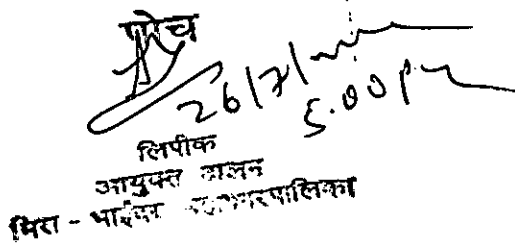 पोच
26/7/
5.00 p
लिपीक
आयुक्त दालन
मिरा - भाईंदर महानगरपालिका